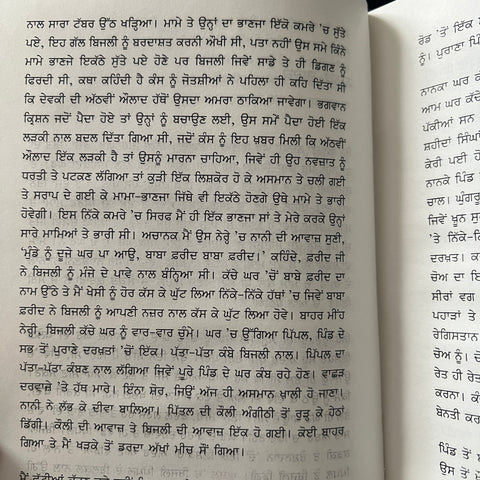 ਨਾਲ ਸਾਰਾ ਟੱਬਰ ਉੱਠ ਖੜ੍ਹਿਆ। ਮਾਮੇ ਤੇ ਉਨ੍ਹਾਂ ਦਾ ਭਾਣਜਾ ਇੱਕੋ ਕਮਰੇ 'ਚ ਸੁੱਤੇ
ਪਏ, ਇਹ ਗੱਲ ਬਿਜਲੀ ਨੂੰ ਬਰਦਾਸ਼ਤ ਕਰਨੀ ਔਖੀ ਸੀ, ਪਤਾ ਨਹੀਂ ਉਸ ਸਮੇਂ ਕਿੰਨੇ
ਮਾਮੇ ਭਾਣਜੇ ਇਕੱਠੇ ਸੁੱਤੇ ਪਏ ਹੋਣੇ ਪਰ ਬਿਜਲੀ ਜਿਵੇਂ ਸਾਡੇ ਤੇ ਹੀ ਡਿਗਣ ਨੂੰ
ਫਿਰਦੀ ਸੀ, ਕਥਾ ਕਹਿੰਦੀ ਹੈ ਕੰਸ ਨੂੰ ਜੋਤਸ਼ੀਆਂ ਨੇ ਪਹਿਲਾ ਹੀ ਕਹਿ ਦਿੱਤਾ ਸੀ
ਕਿ ਦੇਵਕੀ ਦੀ ਅੱਠਵੀਂ ਔਲਾਦ ਹੱਥੋਂ ਉਸਦਾ ਅਮਰਾ ਠਾਕਿਆ ਜਾਵੇਗਾ। ਭਗਵਾਨ
ਕ੍ਰਿਸ਼ਨ ਜਦੋਂ ਪੈਦਾ ਹੋਏ ਤਾਂ ਉਨ੍ਹਾਂ ਨੂੰ ਬਚਾਉਣ ਲਈ, ਉਸ ਸਮੇਂ ਪੈਦਾ ਹੋਈ ਇੱਕ
ਲੜਕੀ ਨਾਲ ਬਦਲ ਦਿੱਤਾ ਗਿਆ ਸੀ, ਜਦੋਂ ਕੰਸ ਨੂੰ ਇਹ ਖ਼ਬਰ ਮਿਲੀ ਕਿ ਅੱਠਵੀਂ
ਔਲਾਦ ਇੱਕ ਲੜਕੀ ਹੈ ਤਾਂ ਉਸਨੂੰ ਮਾਰਨਾ ਚਾਹਿਆ, ਜਿਵੇਂ ਹੀ ਉਹ ਨਵਜਾਤ ਨੂੰ
ਧਰਤੀ ਤੇ ਪਟਕਣ ਲੱਗਿਆ ਤਾਂ ਕੁੜੀ ਇੱਕ ਲਿਸ਼ਕੋਰ ਹੋ ਕੇ ਅਸਮਾਨ ਤੇ ਚਲੀ ਗਈ
ਤੇ ਸਰਾਪ ਦੇ ਗਈ ਕੇ ਮਾਮਾ-ਭਾਣਜਾ ਜਿੱਥੇ ਵੀ ਇਕੱਠੇ ਹੋਣਗੇ ਉਥੇ ਮਾਮੇ ਤੇ ਭਾਰੀ
ਹੋਵੇਗੀ। ਇਸ ਨਿੱਕੇ ਕਮਰੇ 'ਚ ਸਿਰਫ ਮੈਂ ਹੀ ਇੱਕ ਭਾਣਜਾ ਸਾਂ ਤੇ ਮੇਰੇ ਕਰਕੇ ਉਨ੍ਹਾਂ
ਸਾਰੇ ਮਾਮਿਆਂ ਤੇ ਭਾਰੀ ਸੀ। ਅਚਾਨਕ ਮੈਂ ਉਸ ਨੇਰ੍ਹੇ 'ਚ ਨਾਨੀ ਦੀ ਆਵਾਜ਼ ਸੁਣੀ,
'ਮੁੰਡੇ ਨੂੰ ਦੂਜੇ ਘਰ ਪਾ ਆਉ, ਬਾਬਾ ਫ਼ਰੀਦ ਬਾਬਾ ਫ਼ਰੀਦ।' ਕਹਿੰਦੇ, ਫ਼ਰੀਦ ਜੀ
ਨੇ ਬਿਜਲੀ ਨੂੰ ਮੰਜੇ ਦੇ ਪਾਵੇ ਨਾਲ ਬੰਨ੍ਹਿਆ ਸੀ। ਕੱਚੇ ਘਰ 'ਚੋਂ ਬਾਬੇ ਫ਼ਰੀਦ ਦਾ
ਨਾਮ ਉੱਠੇ ਤੇ ਮੈਂ ਖੇਸੀ ਨੂੰ ਹੋਰ ਕੱਸ ਕੇ ਘੁੱਟ ਲਿਆ ਨਿੱਕੇ-ਨਿੱਕੇ ਹੱਥਾਂ 'ਚ ਜਿਵੇਂ ਬਾਬਾ
ਫ਼ਰੀਦ ਨੇ ਬਿਜਲੀ ਨੂੰ ਆਪਣੀ ਨਜ਼ਰ ਨਾਲ ਕੱਸ ਕੇ ਘੁੱਟ ਲਿਆ ਹੋਵੇ। ਬਾਹਰ ਮੀਂਹ
ਨੇਰ੍ਹੀ, ਬਿਜਲੀ ਕੱਚੇ ਘਰ ਨੂੰ ਵਾਰ-ਵਾਰ ਚੁੰਮੇ। ਘਰ 'ਚ ਉੱਗਿਆ ਪਿੱਪਲ, ਪਿੰਡ ਦੇ
ਸਭ ਤੋਂ ਪੁਰਾਣੇ ਦਰਖ਼ਤਾਂ 'ਚੋਂ ਇੱਕ। ਪੱਤਾ-ਪੱਤਾ ਕੰਬੇ ਬਿਜਲੀ ਨਾਲ। ਪਿੱਪਲ ਦਾ
ਪੱਤਾ-ਪੱਤਾ ਕੰਬਣ ਨਾਲ ਲੱਗਿਆ ਜਿਵੇਂ ਪੂਰੇ ਪਿੰਡ ਦੇ ਘਰ ਕੰਬ ਰਹੇ ਹੋਣ। ਵਾਛੜ
ਦਰਵਾਜ਼ੇ 'ਤੇ ਹੱਥ ਮਾਰੇ। ਇੰਨਾ ਸ਼ੋਰ, ਜਿਉਂ ਅੱਜ ਹੀ ਅਸਮਾਨ ਖ਼ਾਲੀ ਹੋ ਜਾਣਾ।
ਨਾਨੀ ਨੇ ਲੱਭ ਕੇ ਦੀਵਾ ਬਾਲਿਆ। ਪਿੱਤਲ ਦੀ ਕੌਲੀ ਅੰਗੀਠੀ ਤੋਂ ਰੁੜ੍ਹ ਕੇ ਹੇਠਾਂ
ਡਿੱਗੀ। ਕੌਲੀ ਦੀ ਆਵਾਜ਼ ਤੇ ਬਿਜਲੀ ਦੀ ਆਵਾਜ਼ ਇੱਕ ਹੋ ਗਈ। ਕੋਈ ਬਾਹਰ
ਗਿਆ ਤੇ ਮੈਂ ਖੜਕੇ ਤੋਂ ਡਰਦਾ ਅੱਖਾਂ ਮੀਚ ਸੌਂ ਗਿਆ।
ਰੋਡ 'ਤੋਂ ਇੱਕ
ਨੂੰ। ਪੁਰਾਣਾ
ਨਾਨਕਾ ਘਰ
ਆਮ ਘਰ ਕੱਚੇ
ਪੱਕੀਆਂ ਸਨ
ਸ਼ਹੀਦਾਂ ਸਿੰਘਾਂ
ਕੇਰੀ ਪਈ
ਨਾਨਕੇ ਪਿੰਡ
ਚਾਲ। ਘੁੰਗਰੂ
ਜਿਵੇਂ ਖੂਨ
'ਤੇ ਨਿੱਕੇ
ਦਰਖ਼ਤ।
ਚੋਅ ਦਾ
ਸੀਰਾਂ ਵਗ
ਪਹਾੜਾਂ ਤੇ
ਰੇਗਿਸਤਾਨ
ਚੋਅ ਨੂੰ।
ਰੇਤ ਹੀ ਰੇਤ
ਕਰਨਾ।
ਬੇਨਤੀ ਕਰ
ਪਿੰਡ ਤੋਂ
ਉਸ ਤੋਂ